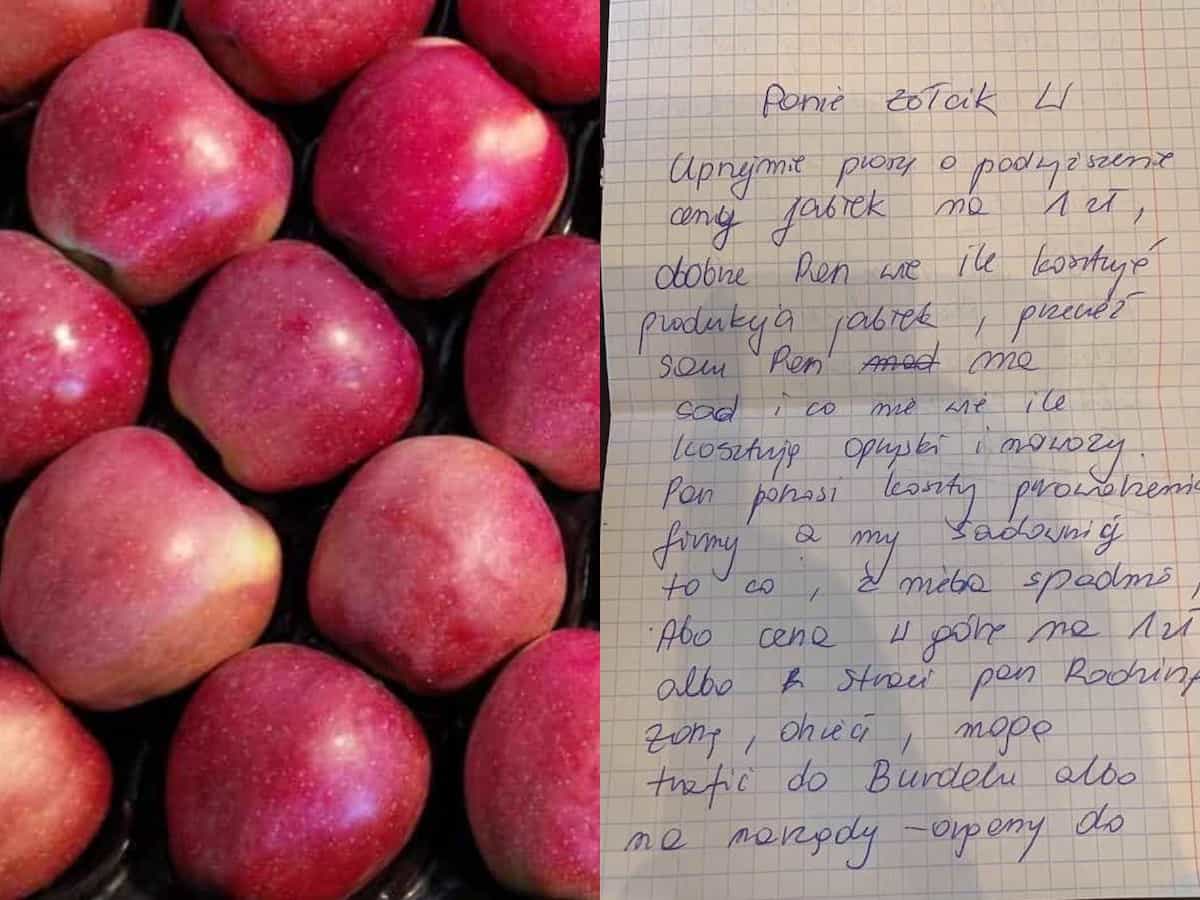 Panie Żołcik Ц
Uprzejmie proszę o podwyższenie
ceny jabłek na 1 zł,
dobrze Pan wie ile kosztuje
produkcja jabłek, przecież
sam Pan ma
sad i co nie wie ile
kosztuję opryski i nawozy.
Pan ponosi koszty prowadzenia
firmy a my sadownicy
to co, z nieba spadnie,
Abo cena w górę na 1 zł
albo straci pan Rodzinę
żonę, dzieci, mogę
trafić do Burdelu albo
na narządy - organy do